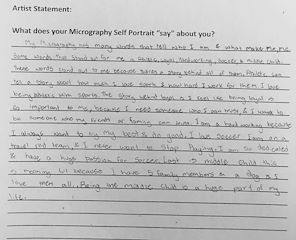 Artist Statement:
What does your Micrography Self Portrait "say" about you?
My Micrography has many words that tell who I am & what makes me, me.
Some words that stand out for me is Athletic, loyal, Hardworking, Soccer, & middle child.
These words stand out to me because theres a story behind all of them. Athletic can
tell a story about how much I love sports & how hard I work for them. I love
being athletic with sports. The story behind loyal is I feel like being loyal is
so important to me, because I need someone who I can trust, & I want to
be someone who my friends or family can trust. I am a hard working because
I always want to try my best & do good. I love Soccer I am on a
travel red team, & I never want to stop playing. I am so dedicated
& have a huge passion for soccer. Last is middle child this
is meaning because I have 5 family members & a dog & I
love them all. Being the middle child is a huge part of my
life.